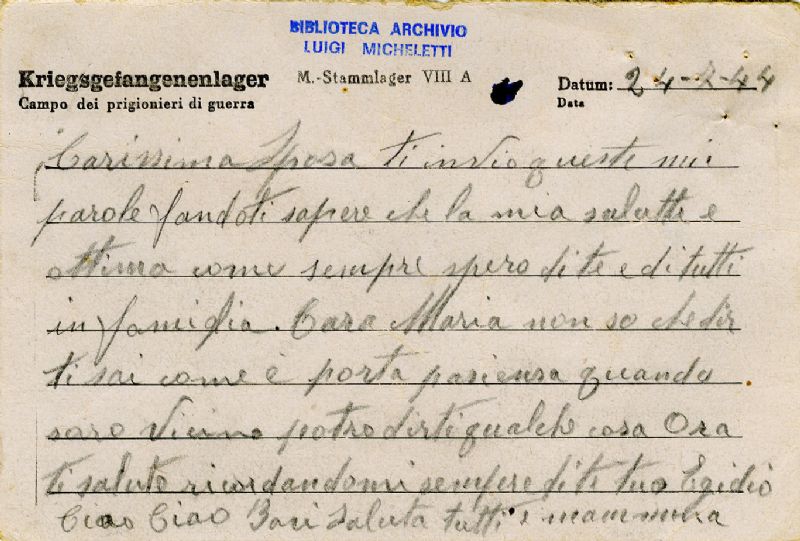 BIBLIOTECA ARCHIVIO
LUIGI MICHELETTI
Kriegsgefangenenlager
M.-Stammlager VIII A
Datum: 24-2-44
Campo dei prigionieri di guerra
Data
Carissima Sposa ti invio queste mie
parole fandoti sapere che la mia salutte e
ottima come sempre spero di te e di tutti
in famiglia. Cara Maria non so che dir
ti sai come è porta pasiensa quando
saro vicino potro dirti qualche cosa Ora
ti saluto ricordandomi sempere di te tuo Egidio
Ciao Ciao Baci saluta tutti e mammina